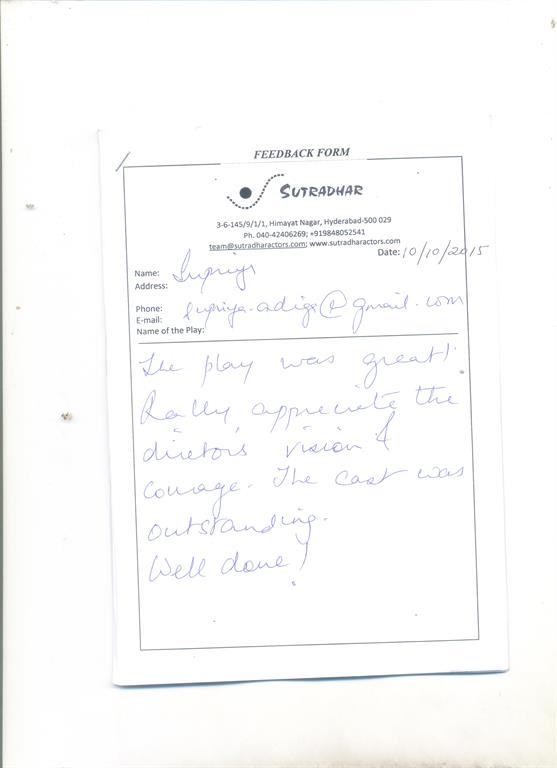 FEEDBACK FORM
SUTRADHAR
3-6-145/9/1/1, Himayat Nagar, Hyderabad-500 029
Ph. 040-42406269; +919848052541
team@sutradharactors.com; www.sutradharactors.com
Date: 10/10/2015
Name: Supriya
Address:
Phone:
E-mail: supriya.adiga@gmail.com
Name of the Play:
The play was great!
Really appreciate the
director's vision &
courage. The cast was
outstanding.
Well done!